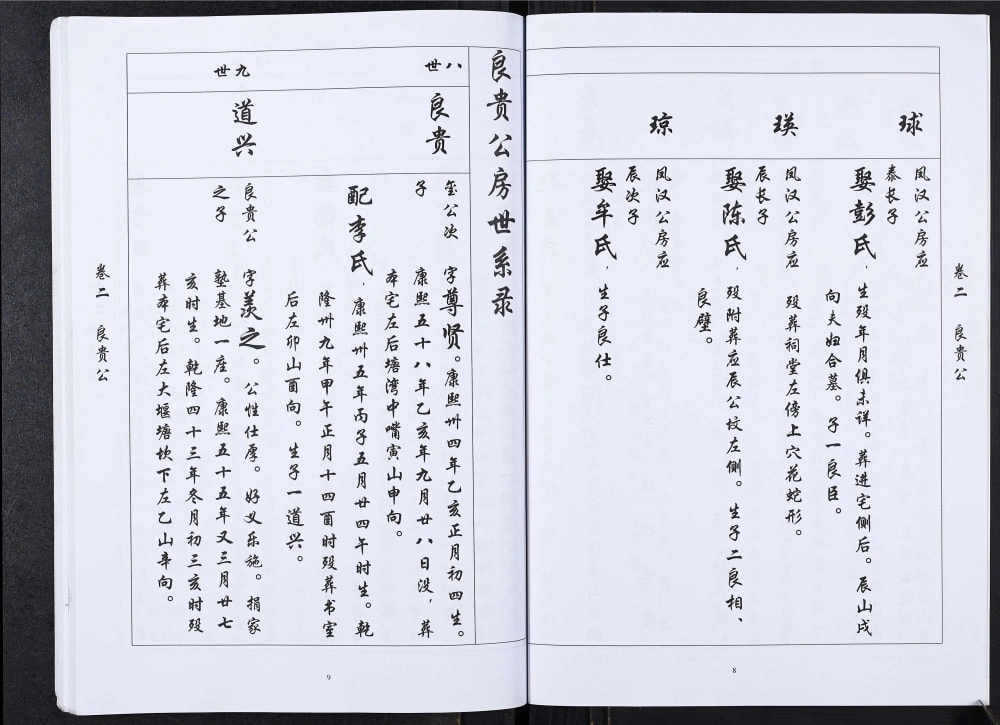 卷二 良贵公
球
凤汉公房应
泰长子
娶彭氏，生殁年月俱未详。葬进宅侧后。辰山戌
向夫妇合墓。子一良臣。
瑛
凤汉公房应
辰长子
殁葬祠堂左傍上穴花蛇形。
娶陈氏，殁附葬应辰公坟左侧。生子二良相、
良璧。
琼
凤汉公房应
辰次子
娶牟氏，生子良仕。
8
良贵公房世系录
八世
良贵
玺公次
子
字尊贤。康熙卅四年乙亥正月初四生。
康熙五十八年乙亥年九月廿八日没，葬
本宅左后塘湾中嘴寅山申向。
配李氏，康熙卅五年丙子五月廿四午时生。乾
隆卅九年甲午正月十四酉时殁葬书室
后左卯山酉向。生子一道兴。
九世
道兴
良贵公
之子
字羡之。公性仕厚。好义乐施。捐家
塾基地一座。康熙五十五年又三月廿七
亥时生。乾隆四十三年冬月初三亥时殁
葬本宅后左大堰塘坎下左乙山辛向。
卷二 良贵公
9